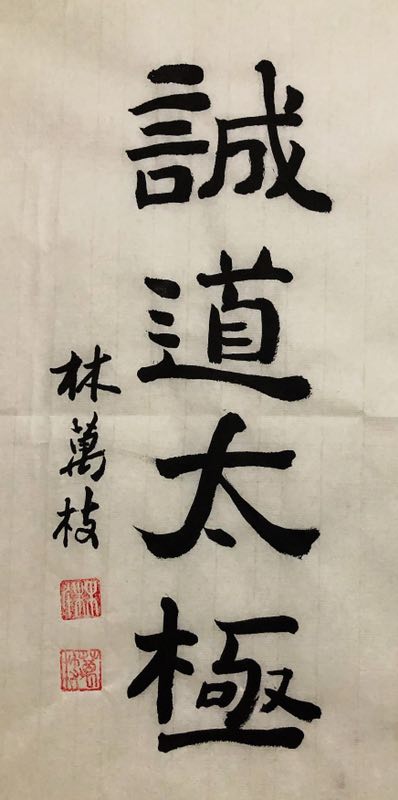 誠道太極
林萬枝